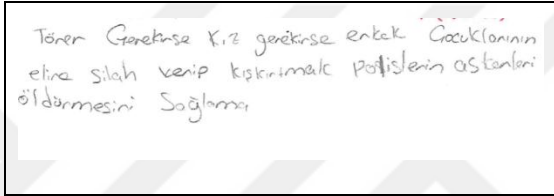 Törer Gerekirse Kız gerekirse erkek Çocuklarının
eline silah verip kışkırtmak polislerin askerleri
öldürmesini Sağlama